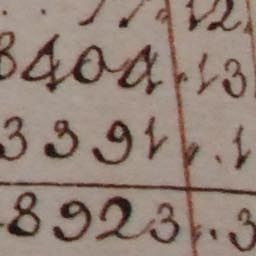 12.
8404.13
3391..1
8923..3